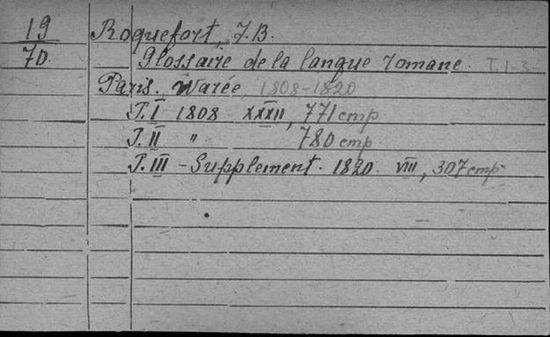 19 Roquefort, J.B.
70. Glossaire de la langue romane. T. 1-3
Paris. Warée 1808-1820
T. I 1808 XXXII, 771 стр
T. II " 780 стр.
T. III - Supplement. 1820. VIII, 307 стр.